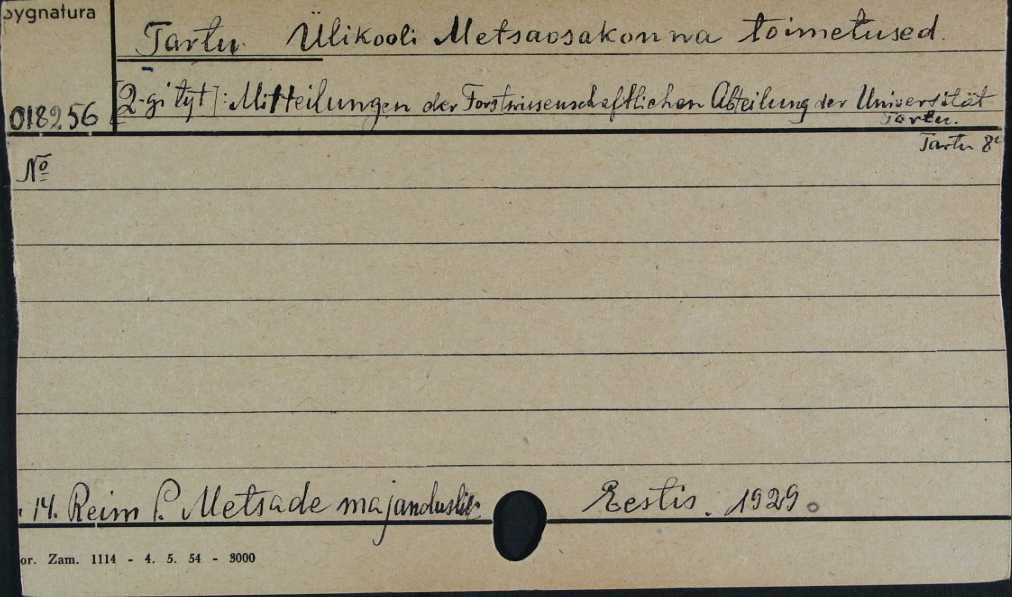 sygnatura
Tartu Ülikooli Metsaosakonna toimetused.
018256
[2-gi tyt]: Mitteilungen der Forstwissenschaftlichen Abteilung der Universität
Tartu.
Tartu 8°
№
14. Reim P. Metsade majanduslik Eestis. 1929.
or. Zam. 1114 - 4. 5. 54 - 3000